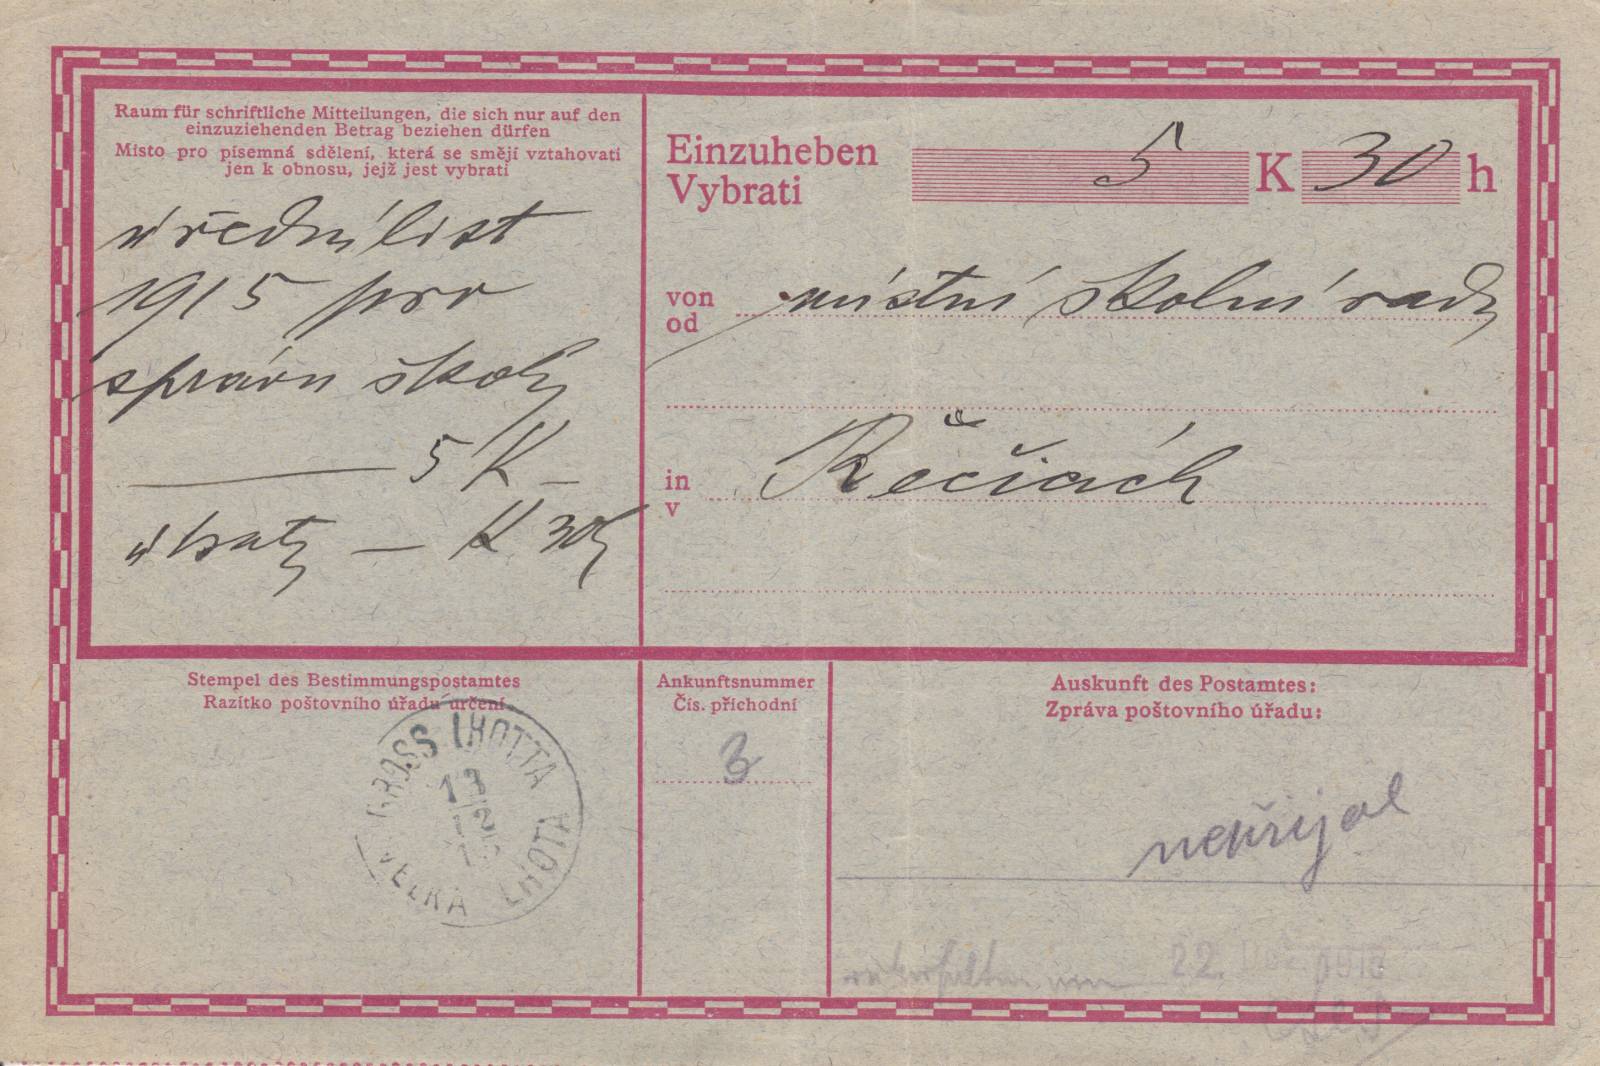 Raum für schriftliche Mitteilungen, die sich nur auf den
einzuziehenden Betrag beziehen dürfen
Místo pro písemná sdělení, která se smějí vztahovati
jen k obnosu, jejž jest vybrati
úřední list
1915 pro
správu školy
5 K –
útraty — K 30h
Einzuheben
Vybrati
5 K 30 h
von
od
místní školní rady
in
v
Řečiách
Stempel des Bestimmungspostamtes
Razítko poštovního úřadu určení
GROSS LHOTTA
VELKÁ LHOTA
Ankunftsnummer
Čís. příchodní
3
Auskunft des Postamtes:
Zpráva poštovního úřadu:
nepřijal
22.